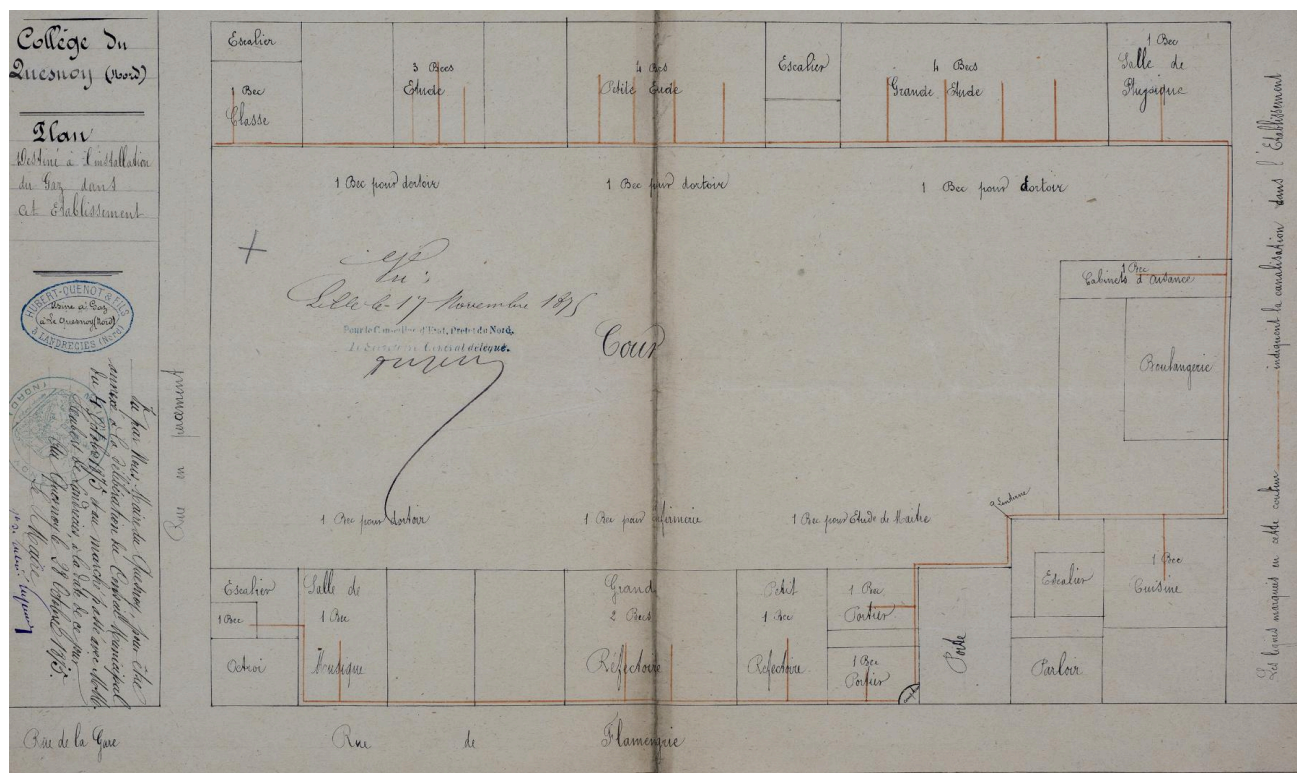 Collège du
Quesnoy (Nord)
Plan
Destiné à l'installation
du Gaz dans
cet Etablissement
HUBERT-QUENOT & FILS
Usine à Gaz
à Le Quesnoy (Nord)
à LANDRECIES (Nord)
Vu par Nous Maire du Quesnoy, pour être
annexé à la délibération du Conseil Municipal
du 4 Octobre 1875 et au marché passé avec MM
Hubert de Landrecies, à la date de ce jour
Au Quesnoy le 28 Octobre 1875.
Le Maire
Rue en pavement
Escalier
1 Bec
Classe
3 Becs
Etude
4 Becs
Petite Etude
Escalier
4 Becs
Grande Etude
1 Bec
Salle de
Physique
1 Bec pour dortoir
1 Bec pour dortoir
1 Bec pour dortoir
Vu:
Lille le 17 Novembre 1875
Pour le Conseiller d'Etat, Préfet du Nord,
Le Secrétaire Général délégué.
Cour
1 Bec
Cabinets d'aisance
Boulangerie
1 Bec pour dortoir
1 Bec pour infirmerie
1 Bec pour Etude de Maître
a Lanterne
Escalier
1 Bec
Octroi
Salle de
1 Bec
Musique
Grand
2 Becs
Réfectoire
Petit
1 Bec
Refectoire
1 Bec
Portier
1 Bec
Portier
Porte
Escalier
Parloir
1 Bec
Cuisine
Les lignes marquées en cette couleur indiquent la canalisation dans l'Etablissement
Rue de la Gare
Rue de Flamengrie